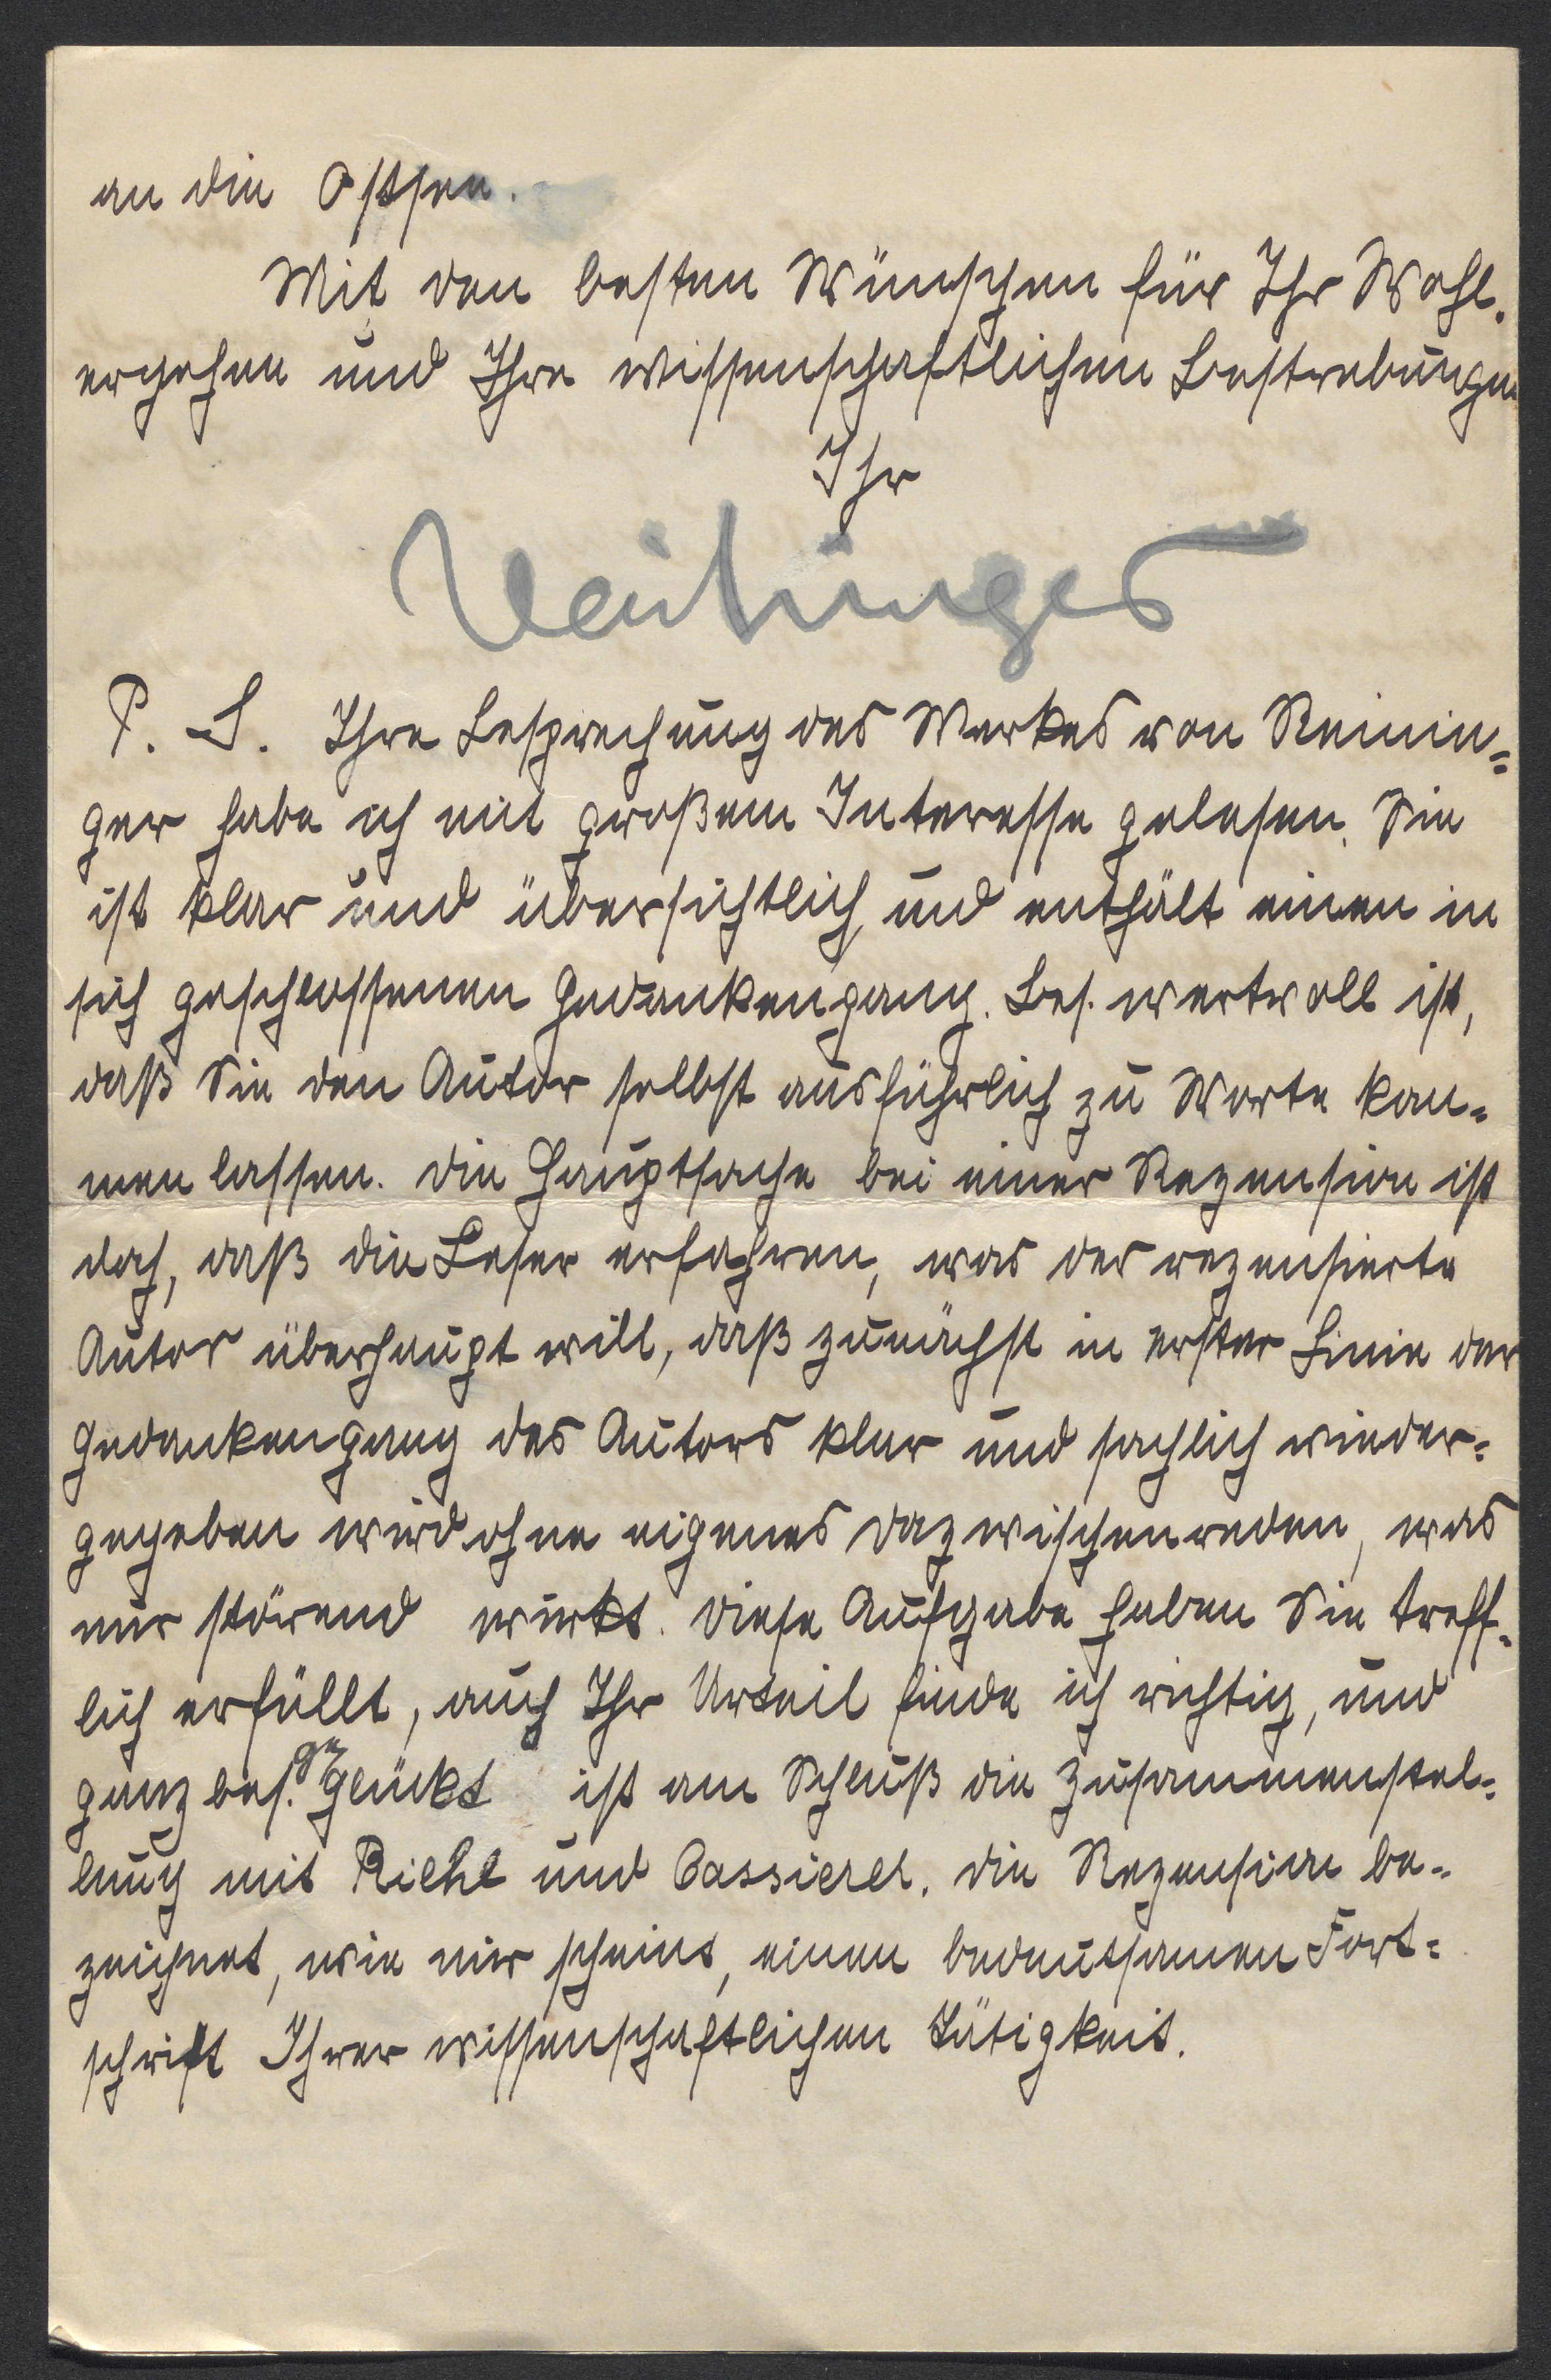 an die Ostsee.
Mit den besten Wünschen für Ihr Wohl-
ergehen und Ihre wissenschaftlichen Bestrebungen
Ihr
Vaihinger
P. S. Ihre Besprechung des Werkes von Reinin=
ger habe ich mit großem Interesse gelesen. Sie
ist klar und übersichtlich und enthält einen in
sich geschlossenen Gedankengang. Bes. wertvoll ist,
daß Sie den Autor selbst ausführlich zu Worte kom-
men lassen. Die Hauptsache bei einer Rezension ist
doch, daß die Leser erfahren, was der rezensierte
Autor überhaupt will, daß zunächst in erster Linie der
Gedankengang des Autors klar und sachlich wieder=
gegeben wird ohne eigenes Dazwischenreden, was
nur störend wirkt. Diese Aufgabe haben Sie treff-
lich erfüllt, auch Ihr Urteil finde ich richtig, und
ganz bes. geglückt ist am Schluß die Zusammenstel=
lung mit Riehl und Cassierer. Die Rezension be-
zeichnet, wie mir scheint, einen bedeutsamen Fort=
schritt Ihrer wissenschaftlichen Tätigkeit.